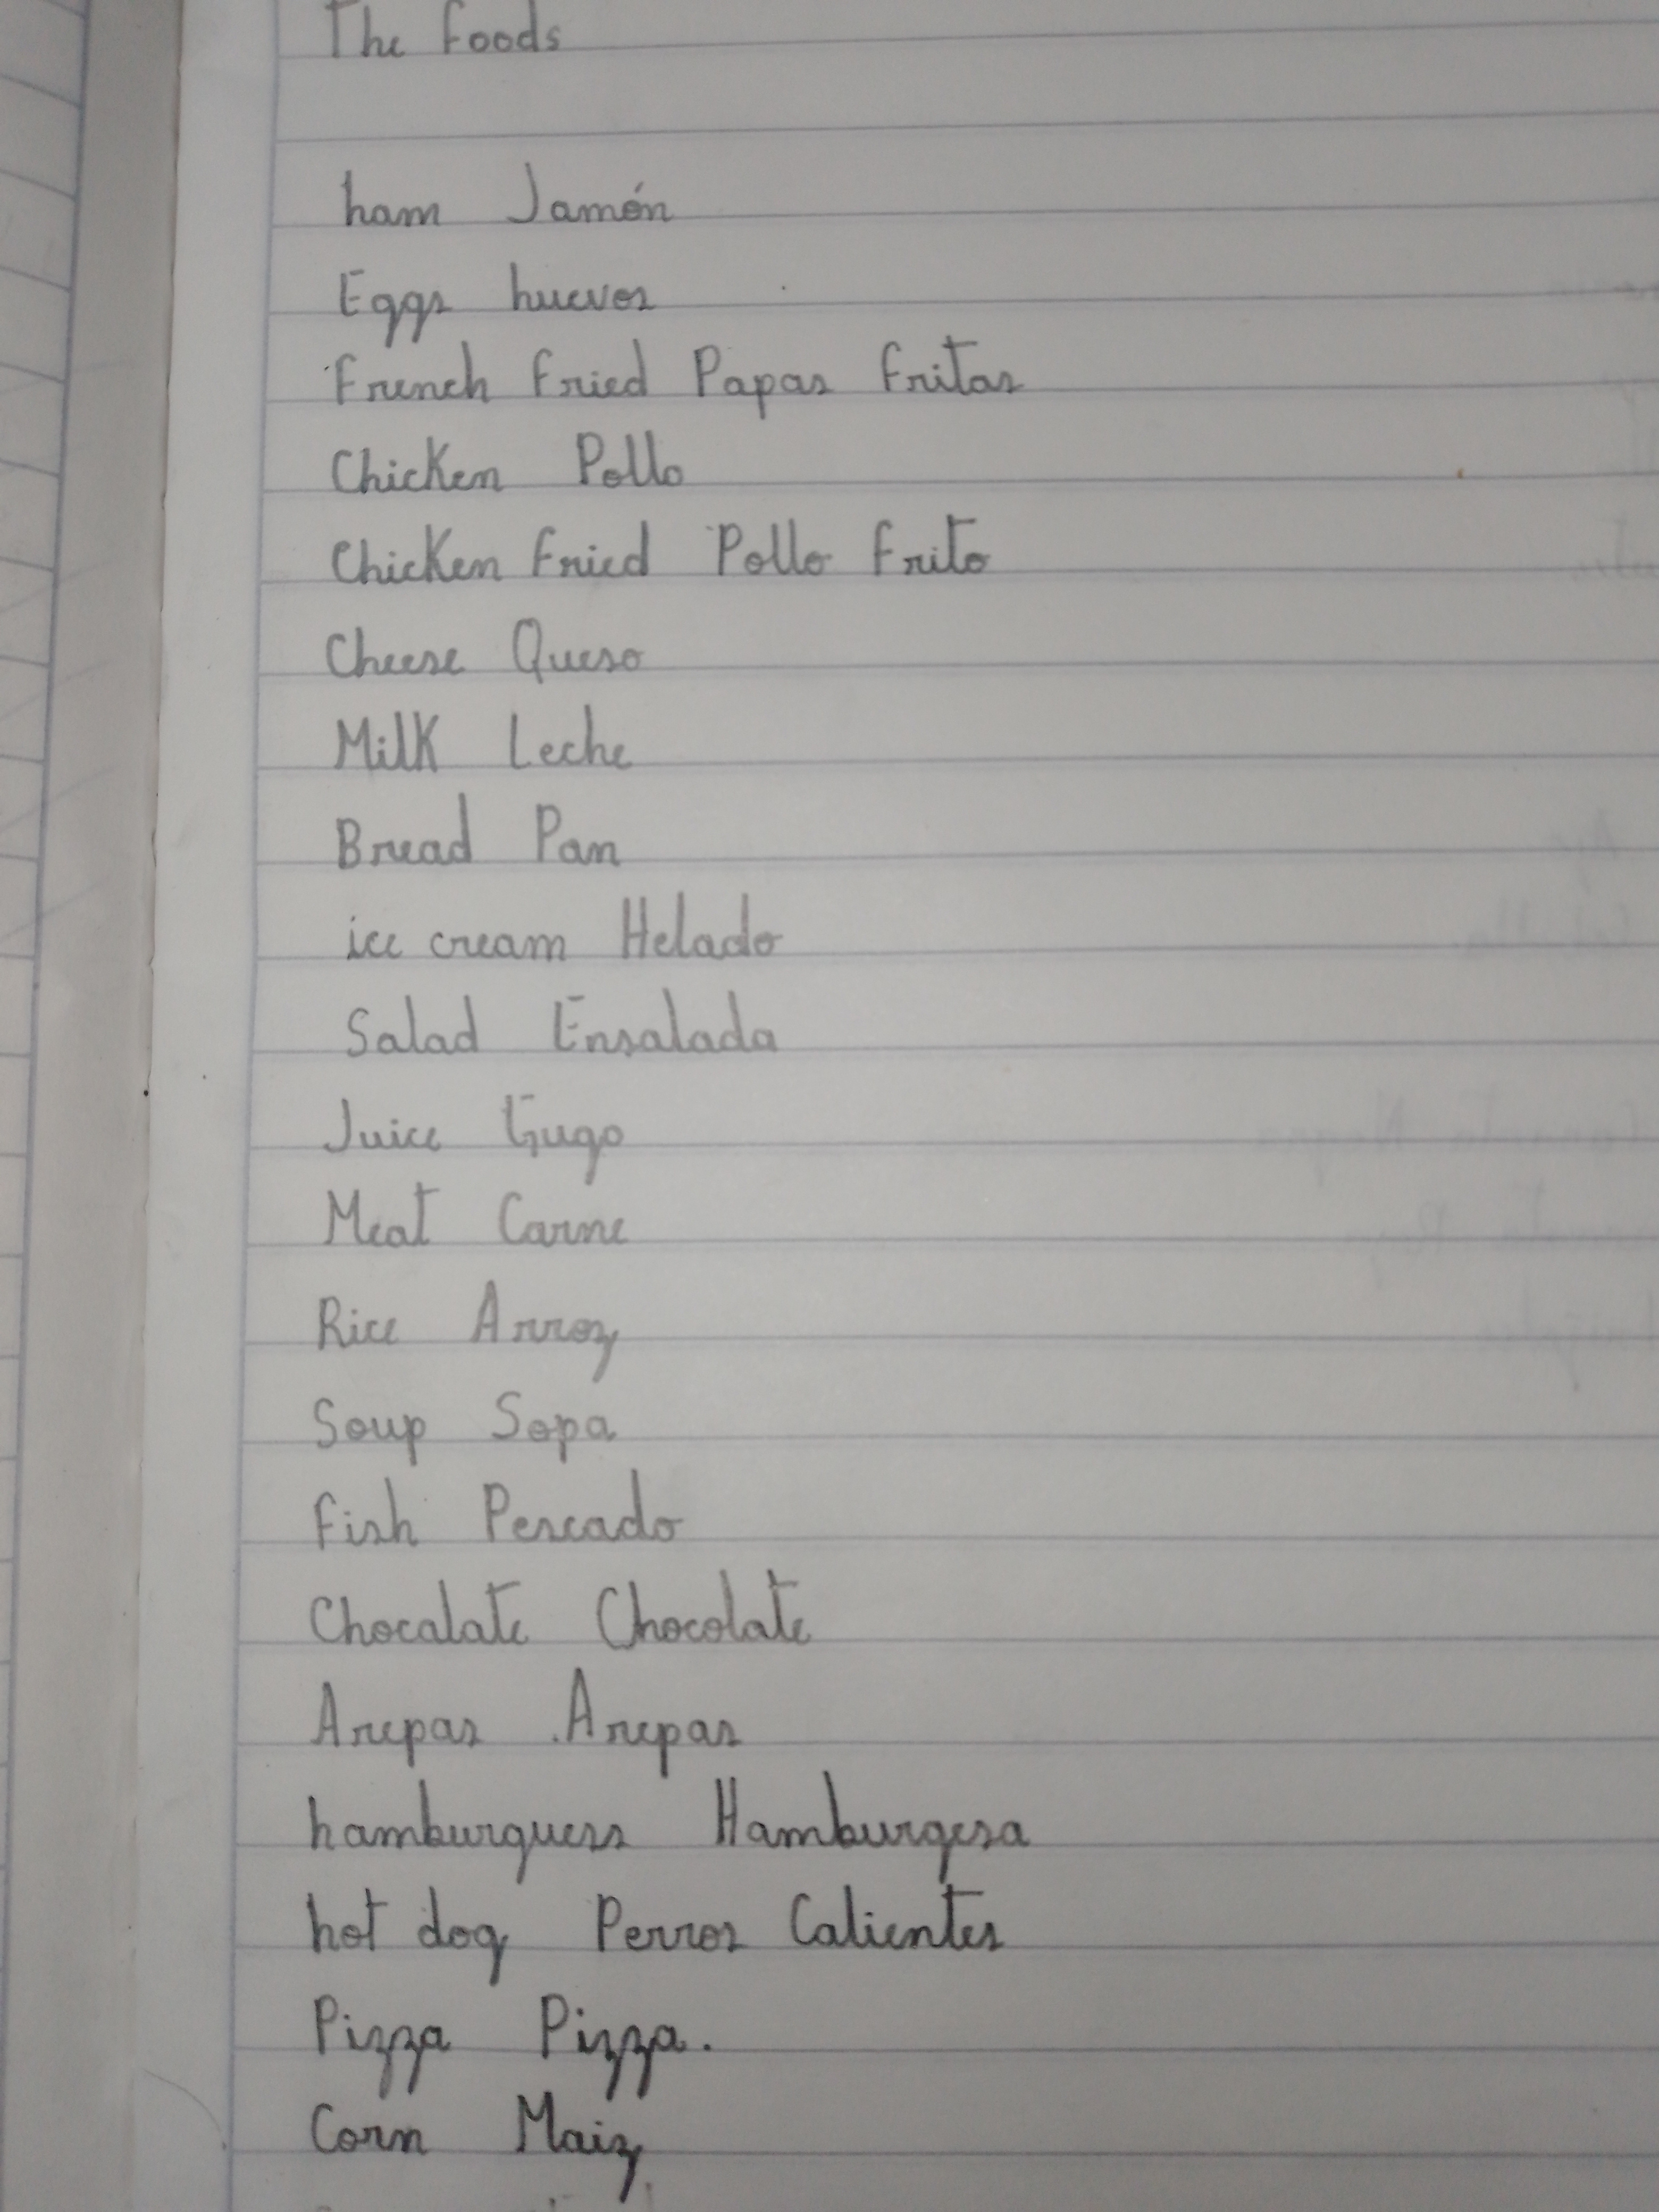 The Foods
ham Jamón
Eggs huevos
French Fried Papas Fritas
Chicken Pollo
Chicken Fried Pollo Frito
Cheese Queso
Milk Leche
Bread Pan
ice cream Helado
Salad Ensalada
Juice Gugo
Meat Carne
Rice Arroz
Soup Sopa
Fish Pescado
Chocalate Chocolate
Arepas Arepas
hamburguess Hamburgesa
hot dog Perros Calientes
Pizza Pizza.
Corn Maiz